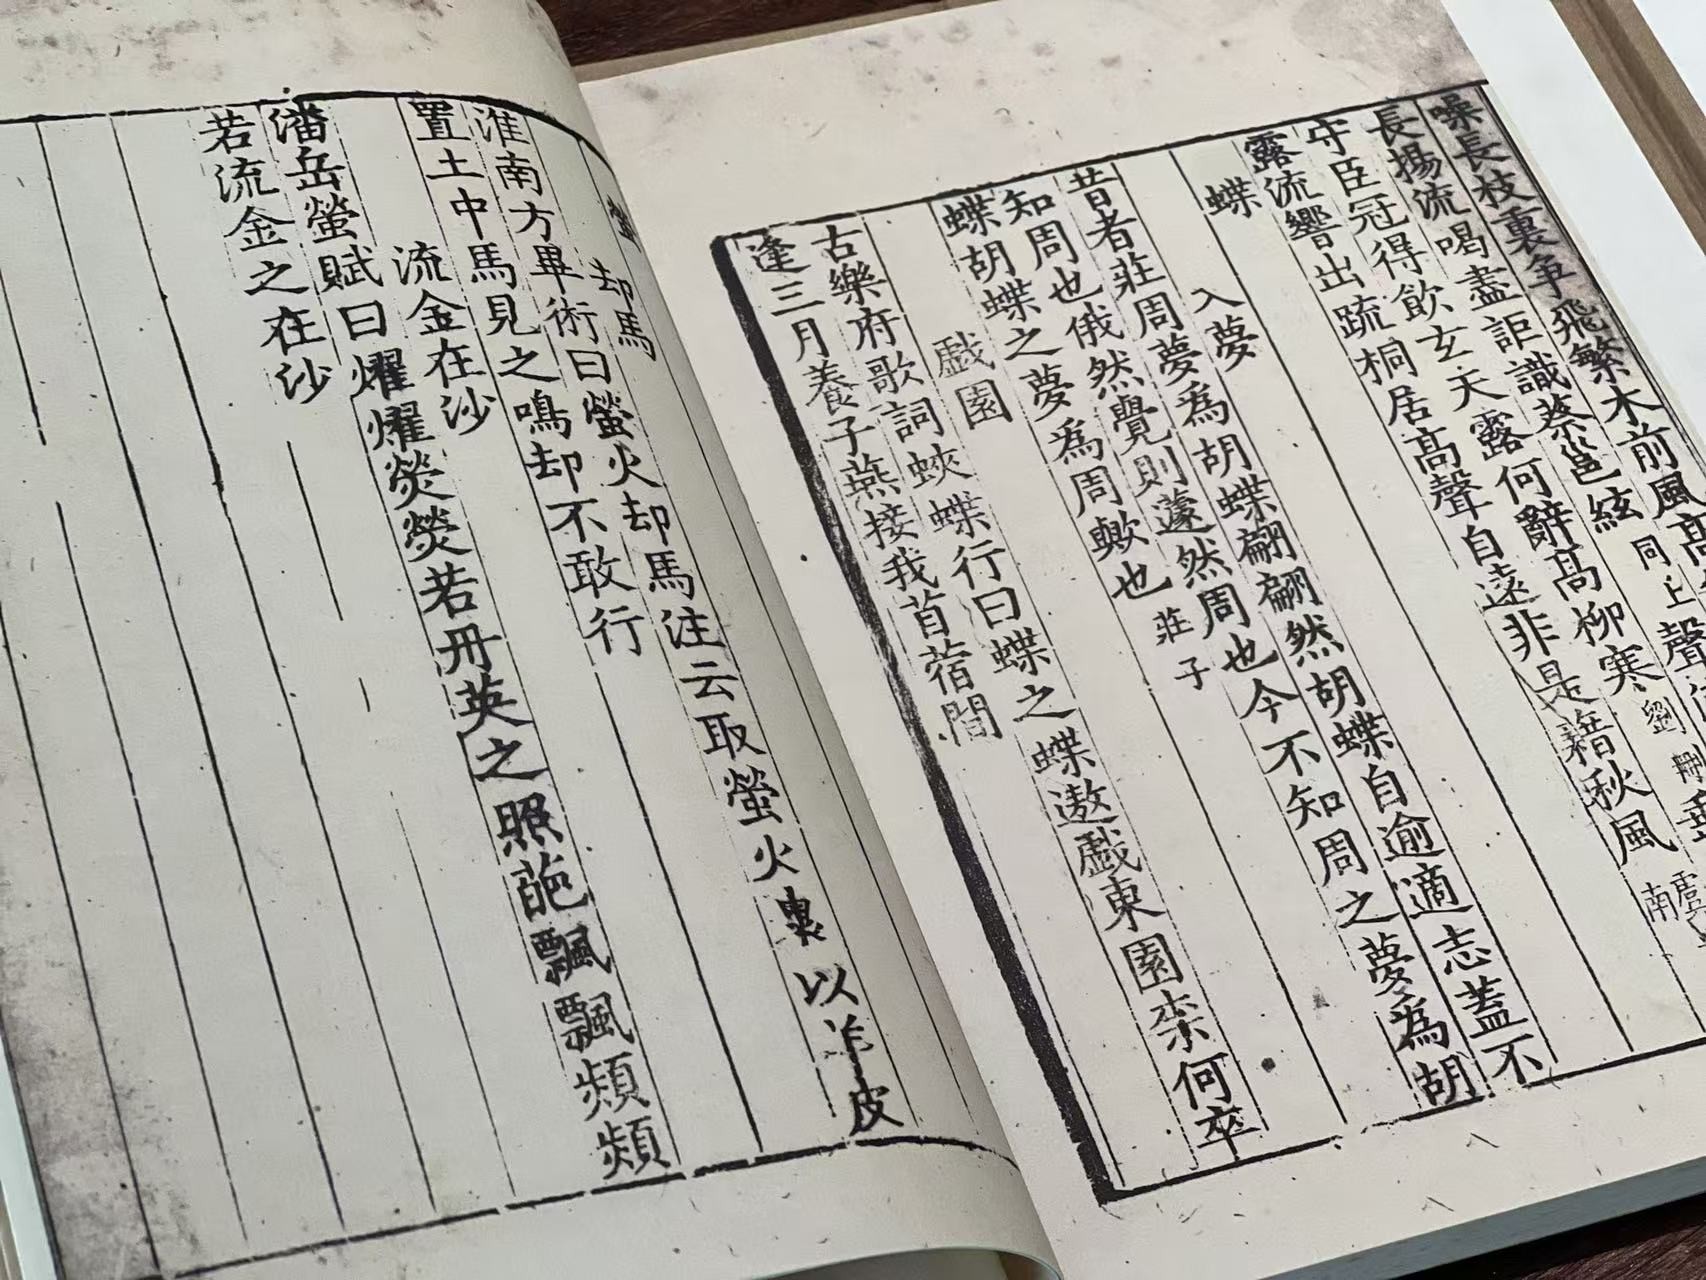 噪長枝裏争飛繁木前風高
長揚流喝盡詎識蔡邕絃同上聲
守臣冠得飲玄天露何辭高柳寒劉刪垂
露流響出疏桐居高聲自遠非是藉秋風
蝶
入夢
昔者莊周夢爲胡蝶翩翩然胡蝶自逾適志蓋不
知周也俄然覺則蘧然周也今不知周之夢爲胡
蝶胡蝶之夢爲周歟也莊子
戲園
古樂府歌詞蛺蝶行曰蝶之蝶遨戲東園柰何卒
逢三月養子燕接我苜蓿間
螢
却馬
淮南方畢術曰螢火却馬注云取螢火裹以羊皮
置土中馬見之鳴却不敢行
流金在沙
潘岳螢賦曰燿燿熒熒若丹英之照葩飄飄頻頻
若流金之在沙